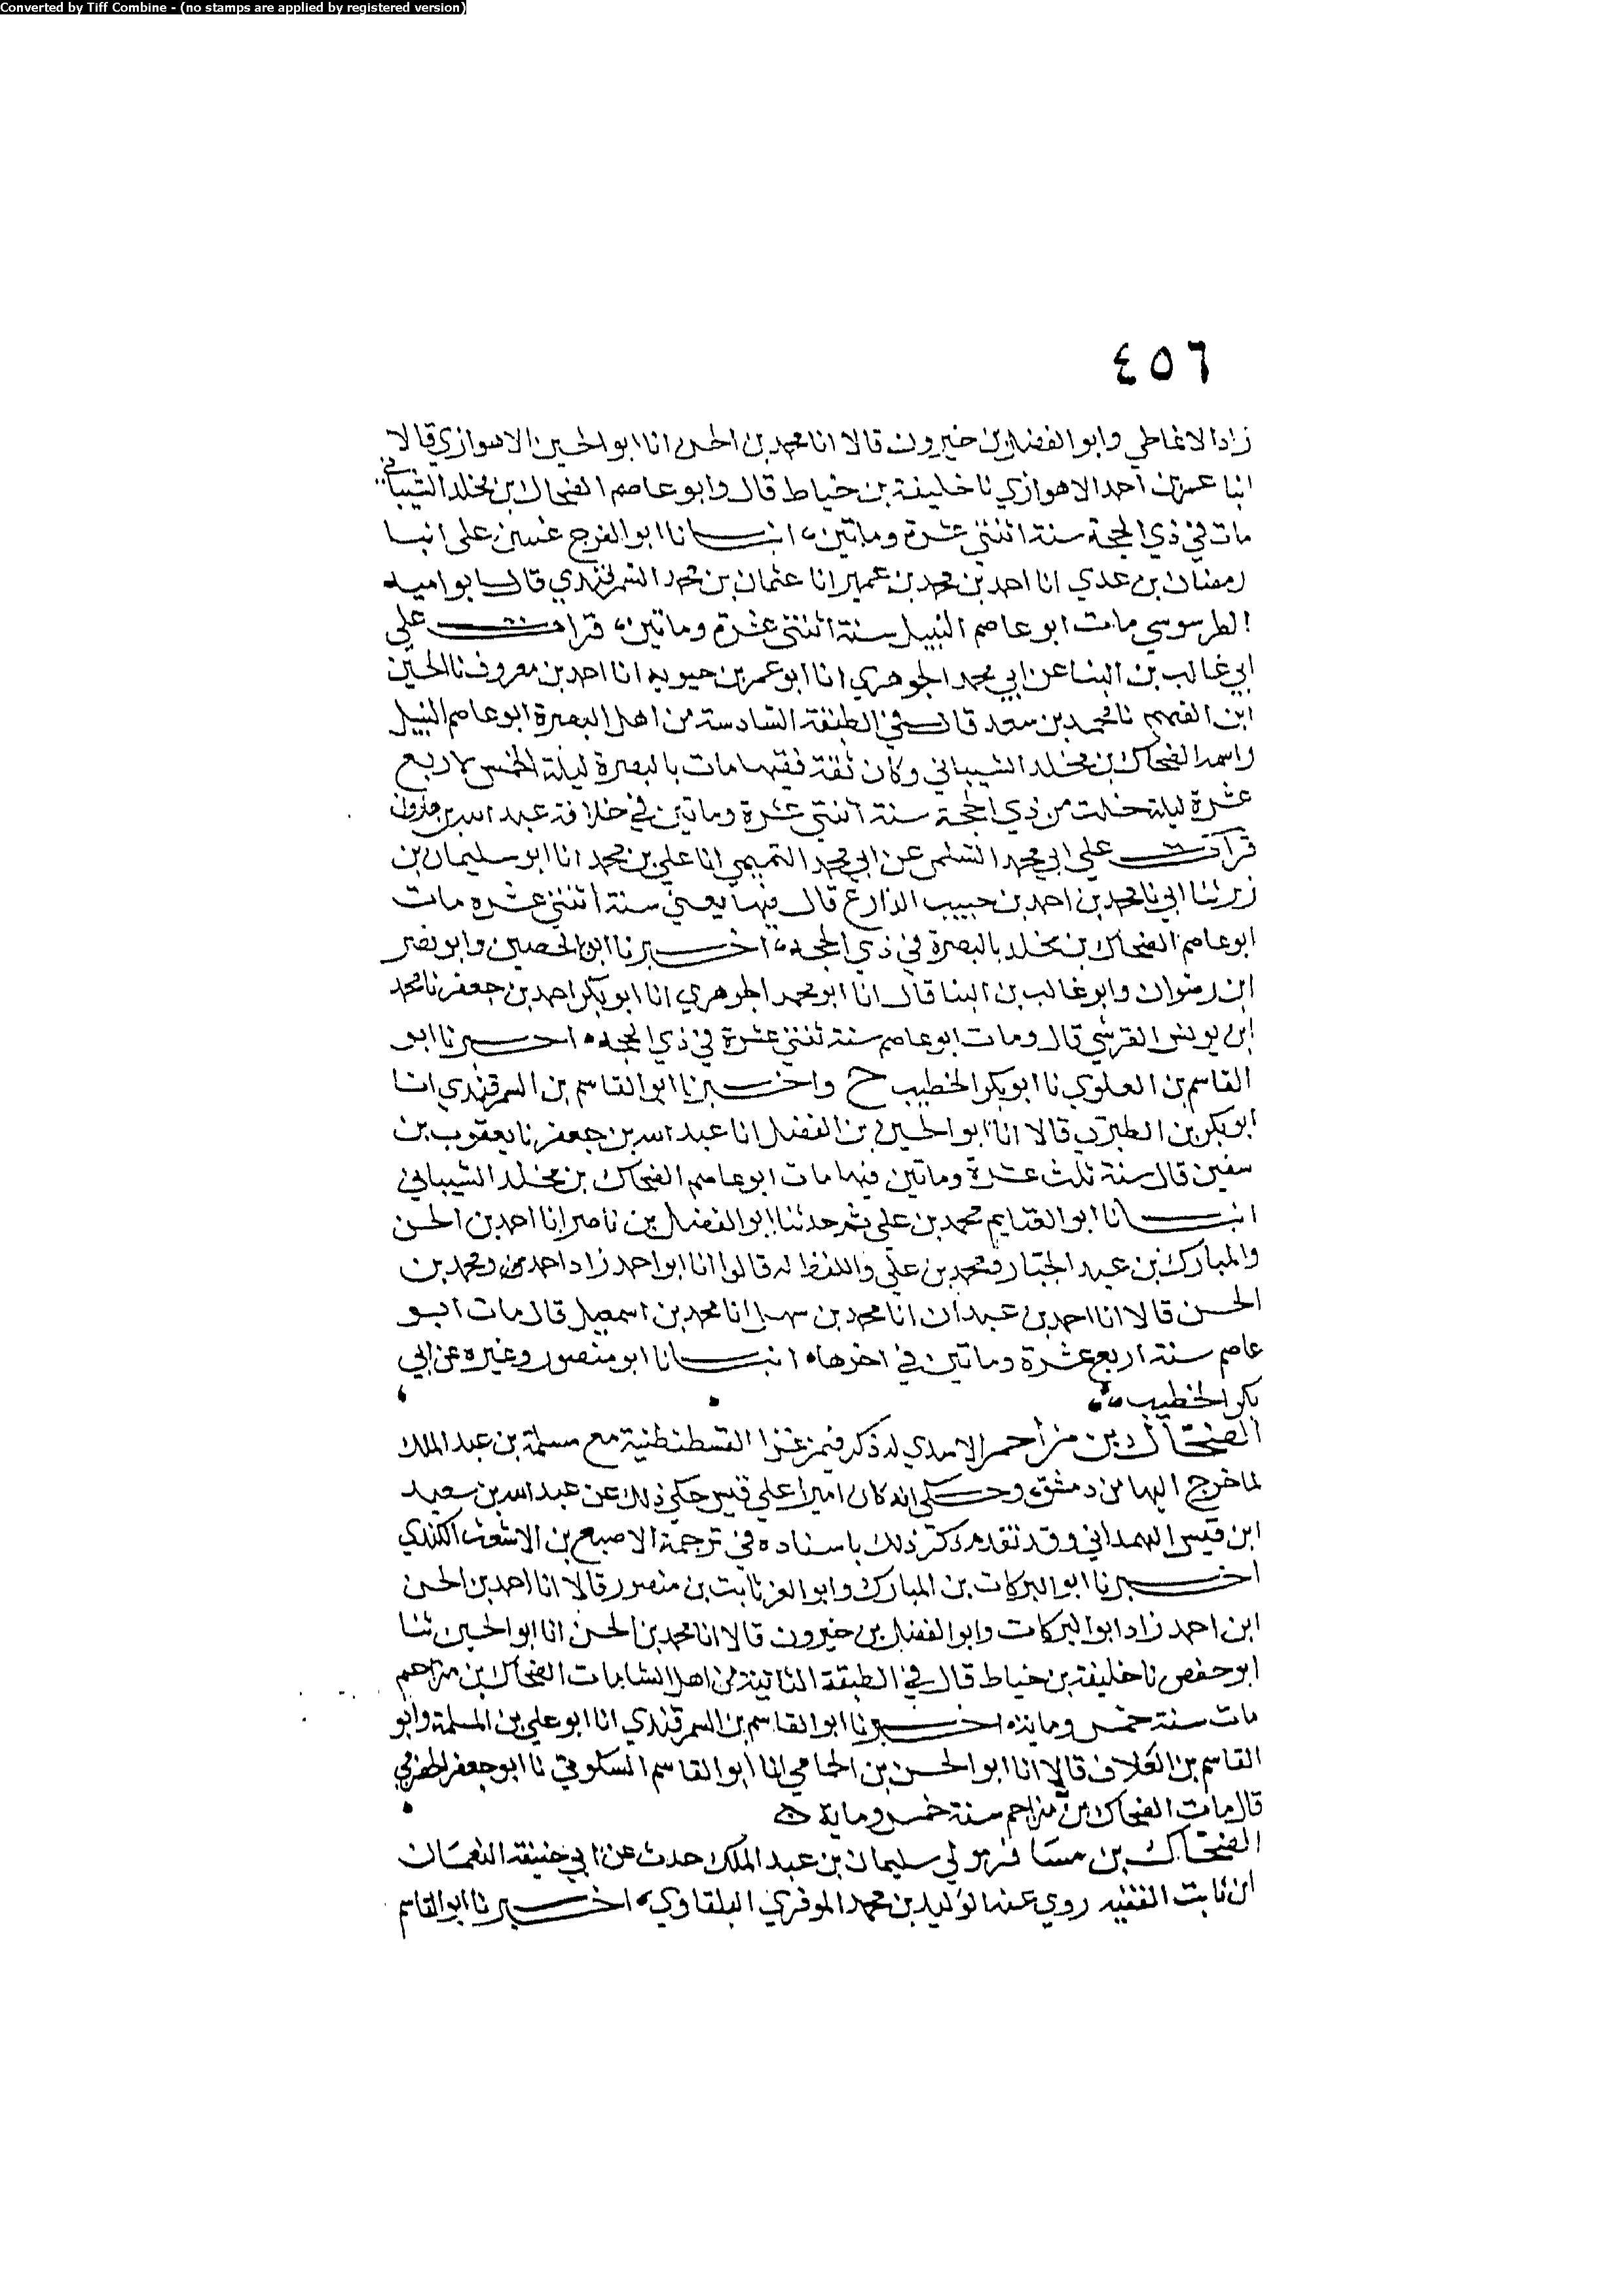 Converted by Tiff Combine - (no stamps are applied by registered version)
٤٥٦
زاد الانماطي وابو الفضل بن خيرون قالا انا محمد بن الحسن انا ابو الحسين الاهوازي قالا
انبا عمر بن احمد الاهوازي نا خليفة بن خياط قال وابو عاصم الضحاك بن مخلد الشيباني
مات في ذي الحجة سنة اثنتي عشرة وماتين، انبانا ابو الفرج غيث بن علي انبا
رمضان بن عدي انا احمد بن محمد بن عمير انا عثمان بن محمد السمرقندي قال ابو اميه
الطرسوسي مات ابو عاصم النبيل سنة اثنتي عشرة وماتين، قرات علي
ابي غالب بن البنا عن ابي محمد الجوهري انا ابو عمر بن حيويه انا احمد بن معروف نا الحسين
ابن الفهم نا محمد بن سعد قال في الطبقة السادسة من اهل البصرة ابو عاصم النبيل
واسمه الضحاك بن مخلد الشيباني وكان ثقة فقيها مات بالبصرة ليلة الخميس لاربع
عشرة ليلة خلت من ذي الحجة سنة اثنتي عشرة وماتين في خلافة عبد الله بن هارون
قرات علي ابي محمد السلمي عن ابي محمد التميمي انا علي بن محمد انا ابو سليمان بن
زبر نا ابي نا محمد بن احمد بن حبيب الذارع قال فيها يعني سنة اثنتي عشره مات
ابو عاصم الضحاك بن مخلد بالبصرة في ذي الحجه، اخبرنا ابن الحصين وابو نصر
ابن رضوان وابو غالب بن البنا قال انا ابو محمد الجوهري انا ابو بكر احمد بن جعفر نا محمد
ابن يونس القرشي قال ومات ابو عاصم سنة ثنتي عشرة في ذي الحجه اخبرنا ابو
القاسم بن العلوي نا ابو بكر الخطيب ح واخبرنا ابو القاسم بن السمرقندي انا
ابو بكر بن الطبري قالا انا ابو الحسين بن الفضل انا عبد الله بن جعفر نا يعقوب بن
سفين قال سنة ثلث عشرة وماتين فيها مات ابو عاصم الضحاك بن مخلد الشيباني
انبانا ابو الغنايم محمد بن علي ثم حدثنا ابو الفضل بن ناصر انا احمد بن الحسن
والمبارك بن عبد الجبار ومحمد بن علي واللفظ له قالوا انا ابو احمد زاد احمد ومحمد بن
الحسن قالا انا احمد بن عبدان انا محمد بن سهل انا محمد بن اسمعيل قال مات ابو
عاصم سنة اربع عشرة وماتين في اخرها، انبانا ابو منصور وغيره عن ابي
بكر الخطيب
الضحاك بن مزاحم الاسدي له ذكر فيمن غزا القسطنطنية مع مسلمة بن عبد الملك
لما خرج اليها من دمشق وحكي انه كان اميرا علي قيس حكي ذلك عن عبد الله بن سعيد
ابن قيس الهمداني وقد تقدم ذكر ذلك باسناده في ترجمة الاصبع بن الاشعث الكندي
اخبرنا ابو البركات بن المبارك وابو العز ثابت بن منصور قالا انا احمد بن الحسن
ابن احمد زاد ابو البركات وابو الفضل بن خيرون قالا انا محمد بن الحسن انا ابو الحسين ثنا
ابو حفص نا خليفة بن خياط قال في الطبقة الثانية من اهل الشامات الضحاك بن مزاحم
مات سنة خمس وماية، اخبرنا ابو القاسم بن السمرقندي انا ابو علي بن المسلمة وابو
القاسم بن العلاف قالا انا ابو الحسن بن الحمامي انا ابو القاسم السكوني نا ابو جعفر الحضرمي
قال مات الضحاك بن مزاحم سنة خمس وماية
الضحاك بن مسافر مولي سليمان بن عبد الملك حدث عن ابي حنيفة النعمان
ابن ثابت الفقيه روي عنه الوليد بن محمد الموقري البلقاوي، اخبرنا ابو القاسم